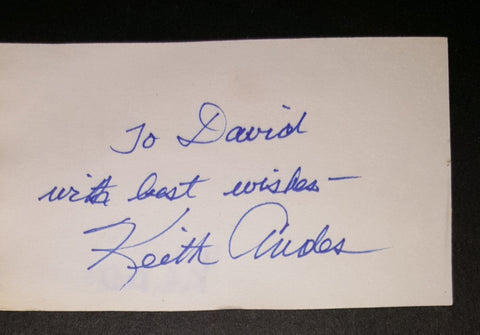 To David
with best wishes—
Keith Andes